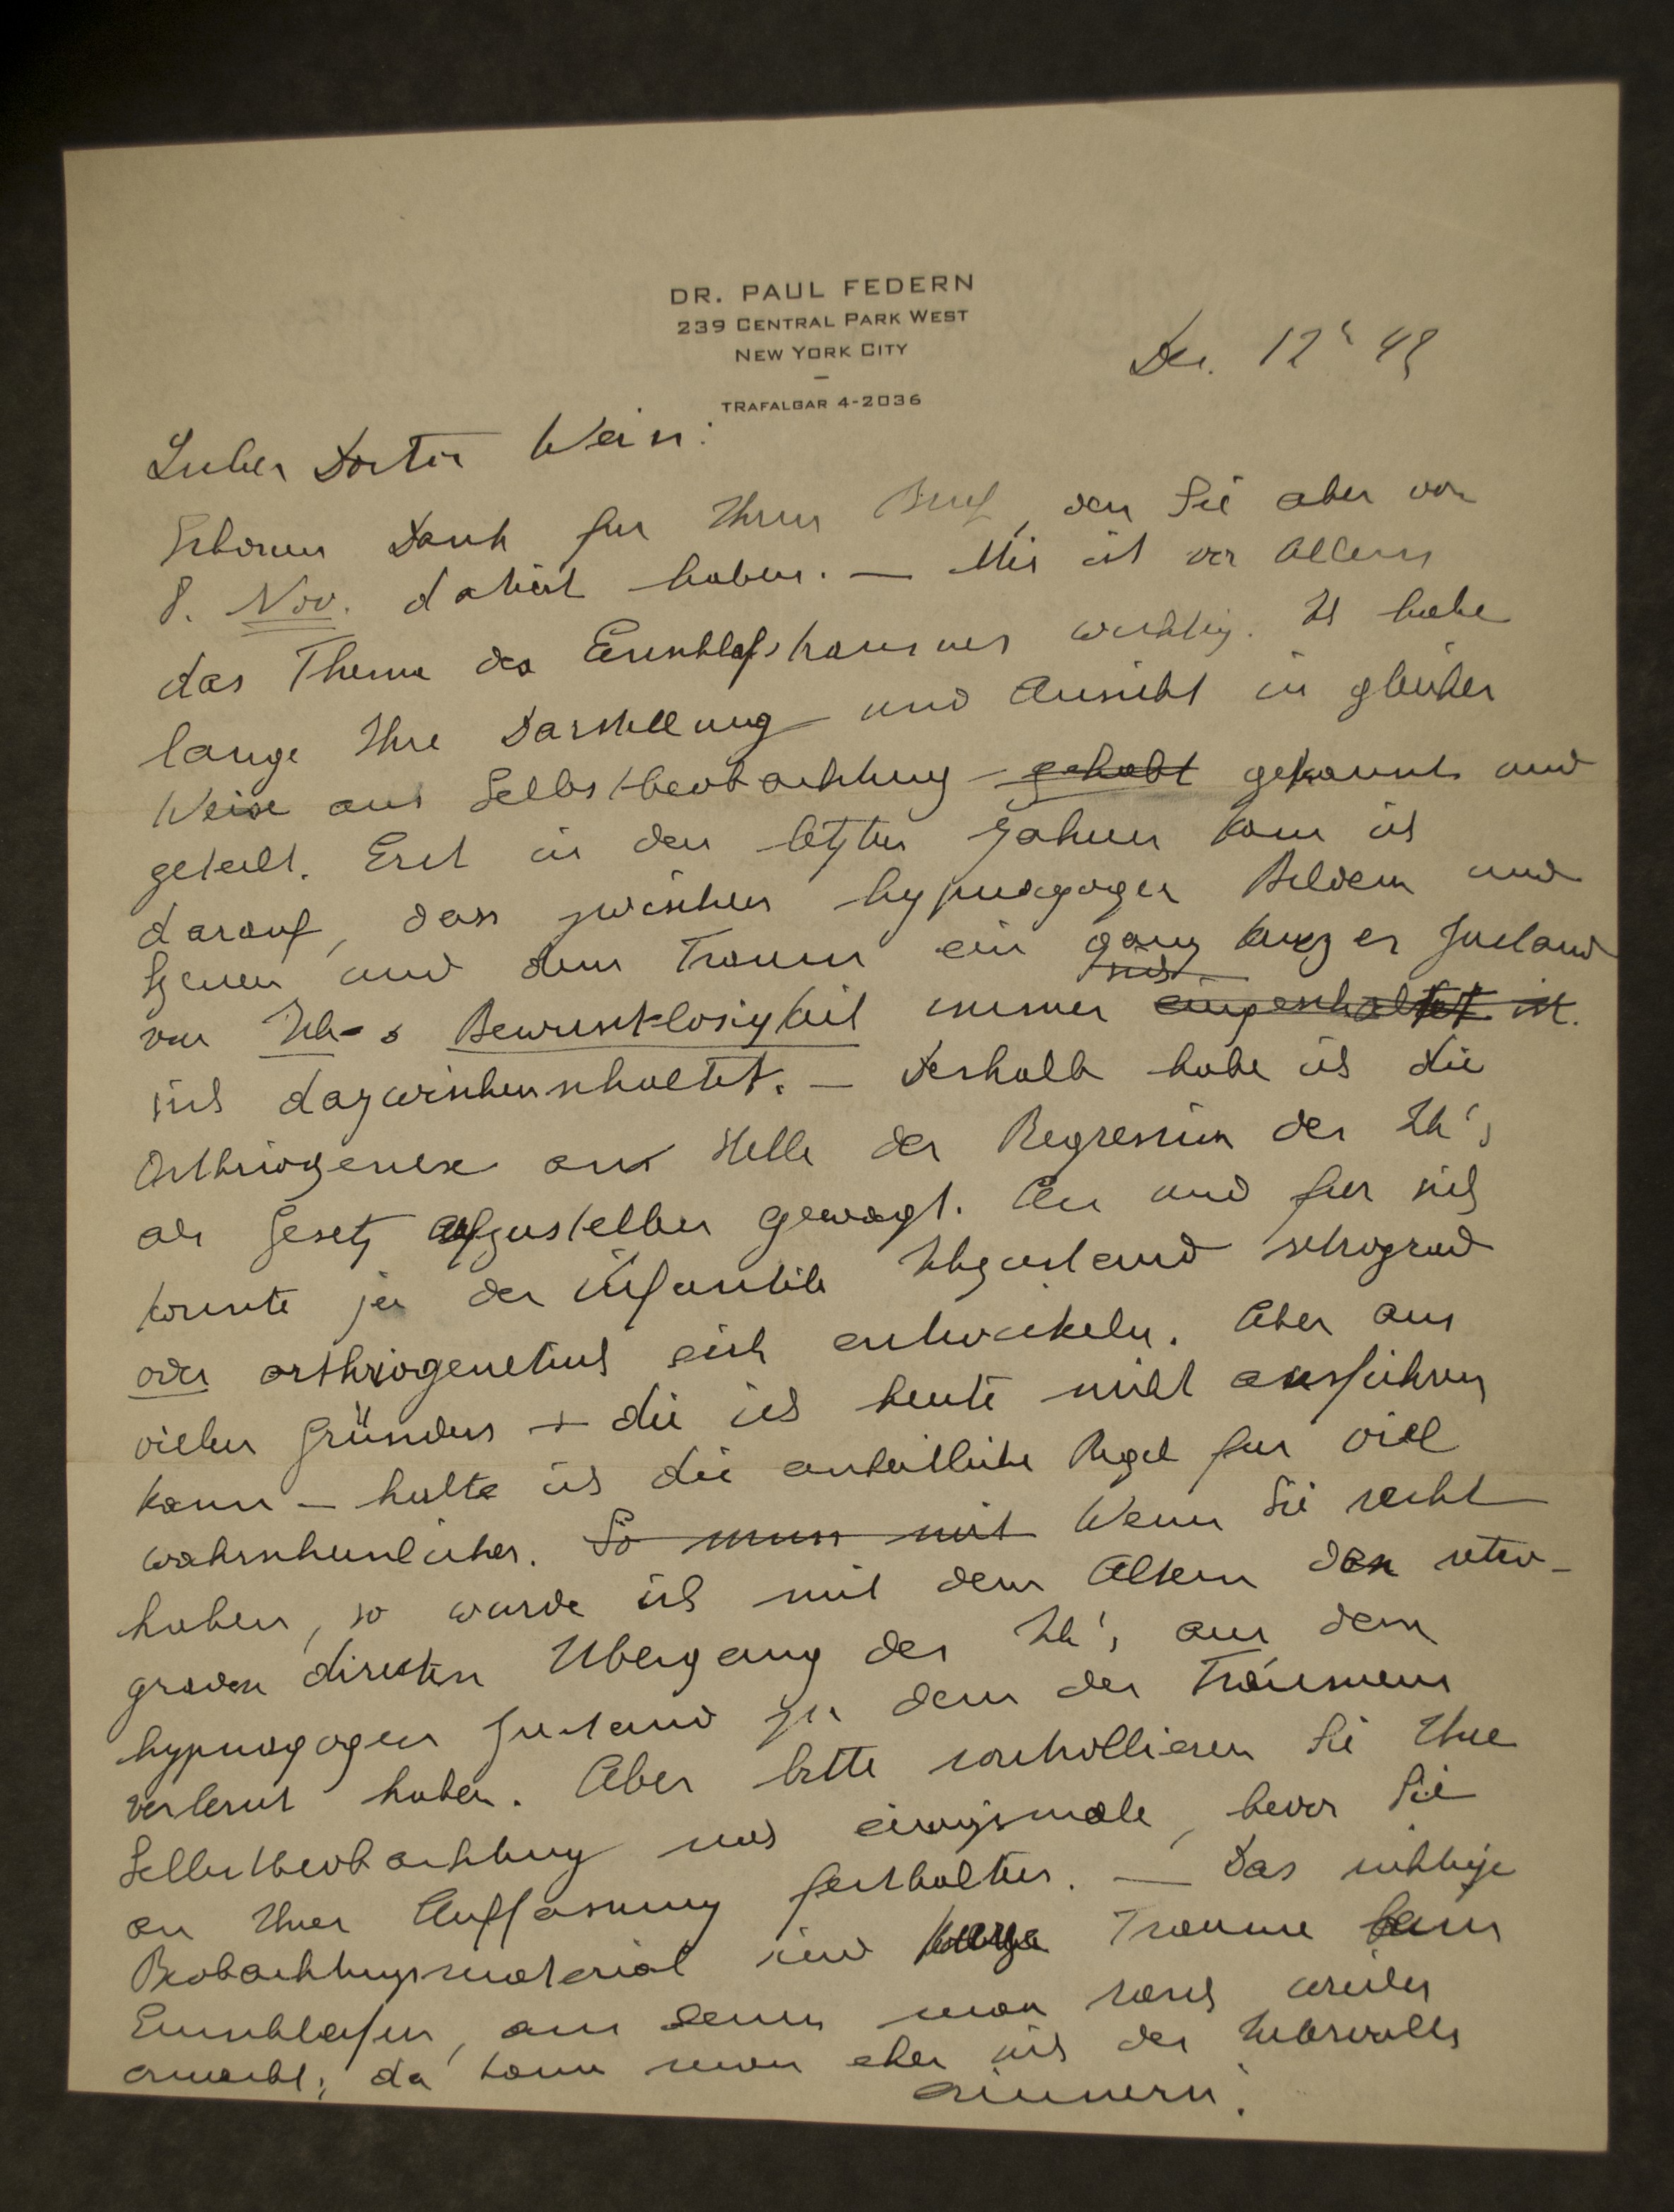 DR. PAUL FEDERN
239 CENTRAL PARK WEST
NEW YORK CITY
TRAFALGAR 4-2036
Dec. 12 49
Lieber Doctor Weiss:
Schönen Dank fur Ihren Brief, den Sie aber von
8. Nov. datiert haben. — Mir ist vor allem
das Thema des Einschlafstraumes wichtig. Ich habe
lange Ihre Darstellung und Ansicht in gleicher
Weise aus Selbstbeobachtung gehabt gekannt und
geteilt. Erst in den letzten Jahren kam ich
darauf, dass zwischen hypnagogen Bildern und
Szenen und dem Traum ein ganz kurzer Zustand
von Ich-s Bewusstlosigkeit immer eingeschaltet ist.
sich dazwischenschaltet. — Deshalb habe ich die
Orthriogenese an Stelle der Regression des Ich's
als Gesetz aufzustellen gewagt. An und fur sich
konnte ja der infantile Ichzustand retrograd
oder orthriogenetisch sich entwickeln. Aber aus
vielen Gründen — die ich heute nicht ausführen
kann — halte ich die einheitliche Regel fur viel
wahrscheinlicher. So muss mit Wenn Sie recht
haben, so wurde ich mit dem Altern den retro-
graden direkten Ubergang des Ich's aus dem
hypnagogen Zustand zu dem des Träumens
verlernt haben. Aber bitte controllieren Sie Ihre
Selbstbeobachtung noch einigemale, bevor Sie
an Ihrer Auffassung festhalten. — Das richtige
Beobachtungsmaterial sind kurze Traume beim
Einschlafen, aus denen man rasch wieder
erwacht; da kann man eher sich des Intervalls
erinnern.